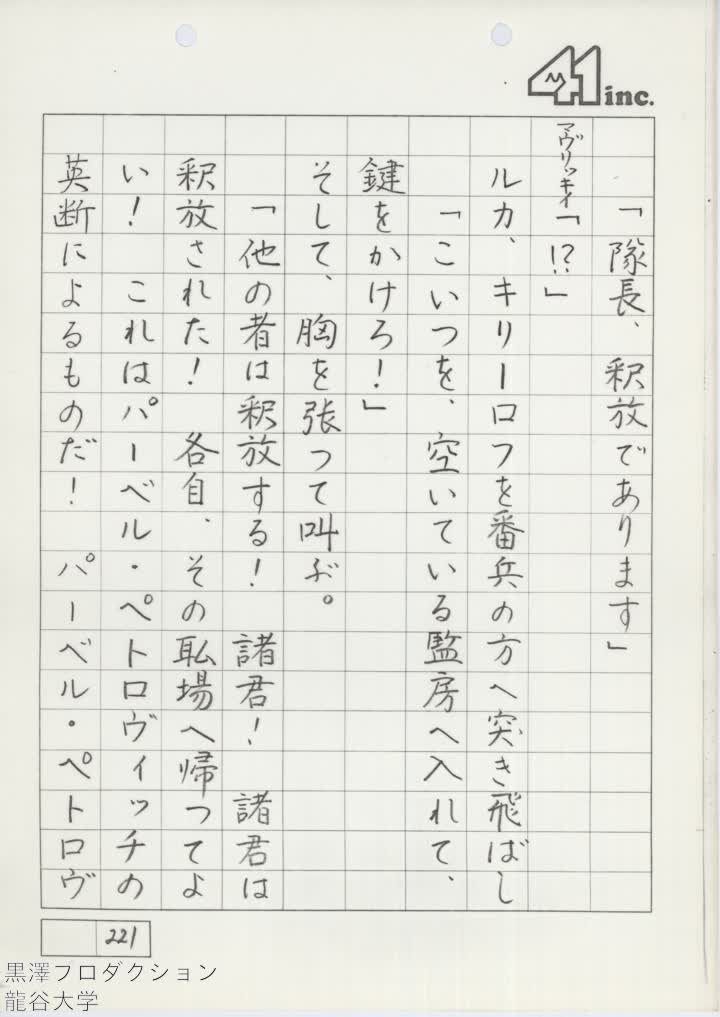 41 inc.
「隊長、釈放であります」
マヴリッキイ「!?」
ルカ、キリーロフを番兵の方へ突き飛ばし
「こいつを、空いている監房へ入れて、
鍵をかけろ！」
そして、胸を張って叫ぶ。
「他の者は釈放する！　諸君！　諸君は
釈放された！　各自、その職場へ帰ってよ
い！　これはパーベル・ペトロヴィッチの
英断によるものだ！　パーベル・ペトロヴ
221
黒澤プロダクション
龍谷大学